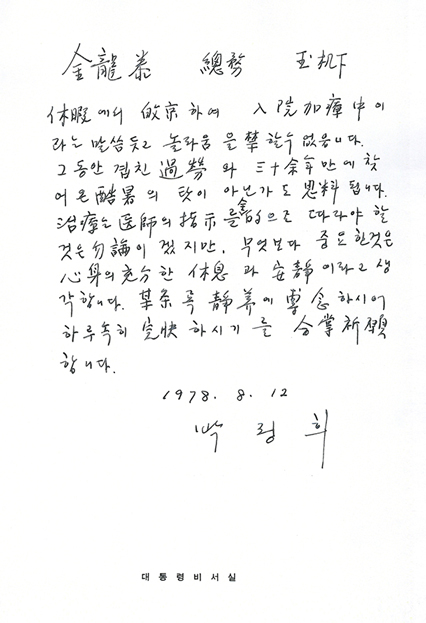 金龍泰 總務 玉机下
休暇에서 故京하여 入院加療中이
라는 말씀듣고 놀라움을 禁할수없읍니다.
그동안 겹친 過勞와 三十余年만에 찾
어온 酷暑의 탓이 아닌가도 思料됩니다.
治療는 医師의 指示를 全的으로 따라야 할
것은 勿論이겠지만, 무엇보다 중요한것은
心身의 充分한 休息과 安靜이라고 생
각합니다. 某条록 靜養에 專念하시어
하루속히 完快하시기를 合掌祈願
합니다.
1978. 8. 12
박정희
대통령비서실